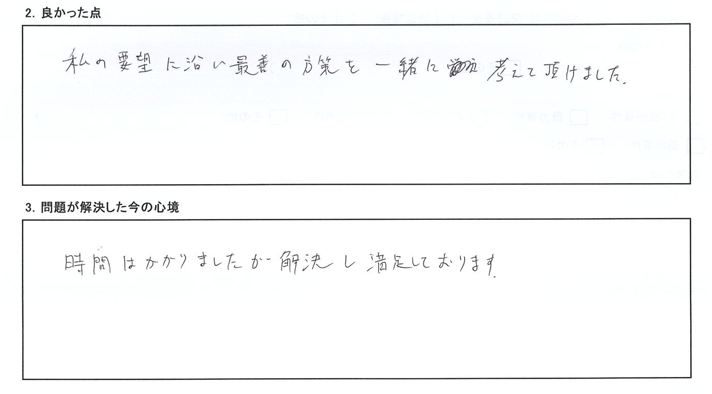 2. 良かった点
私の要望に沿い最善の方策を一緒に考えて頂けました.
3. 問題が解決した今の心境
時間はかかりましたが解決し満足しております.